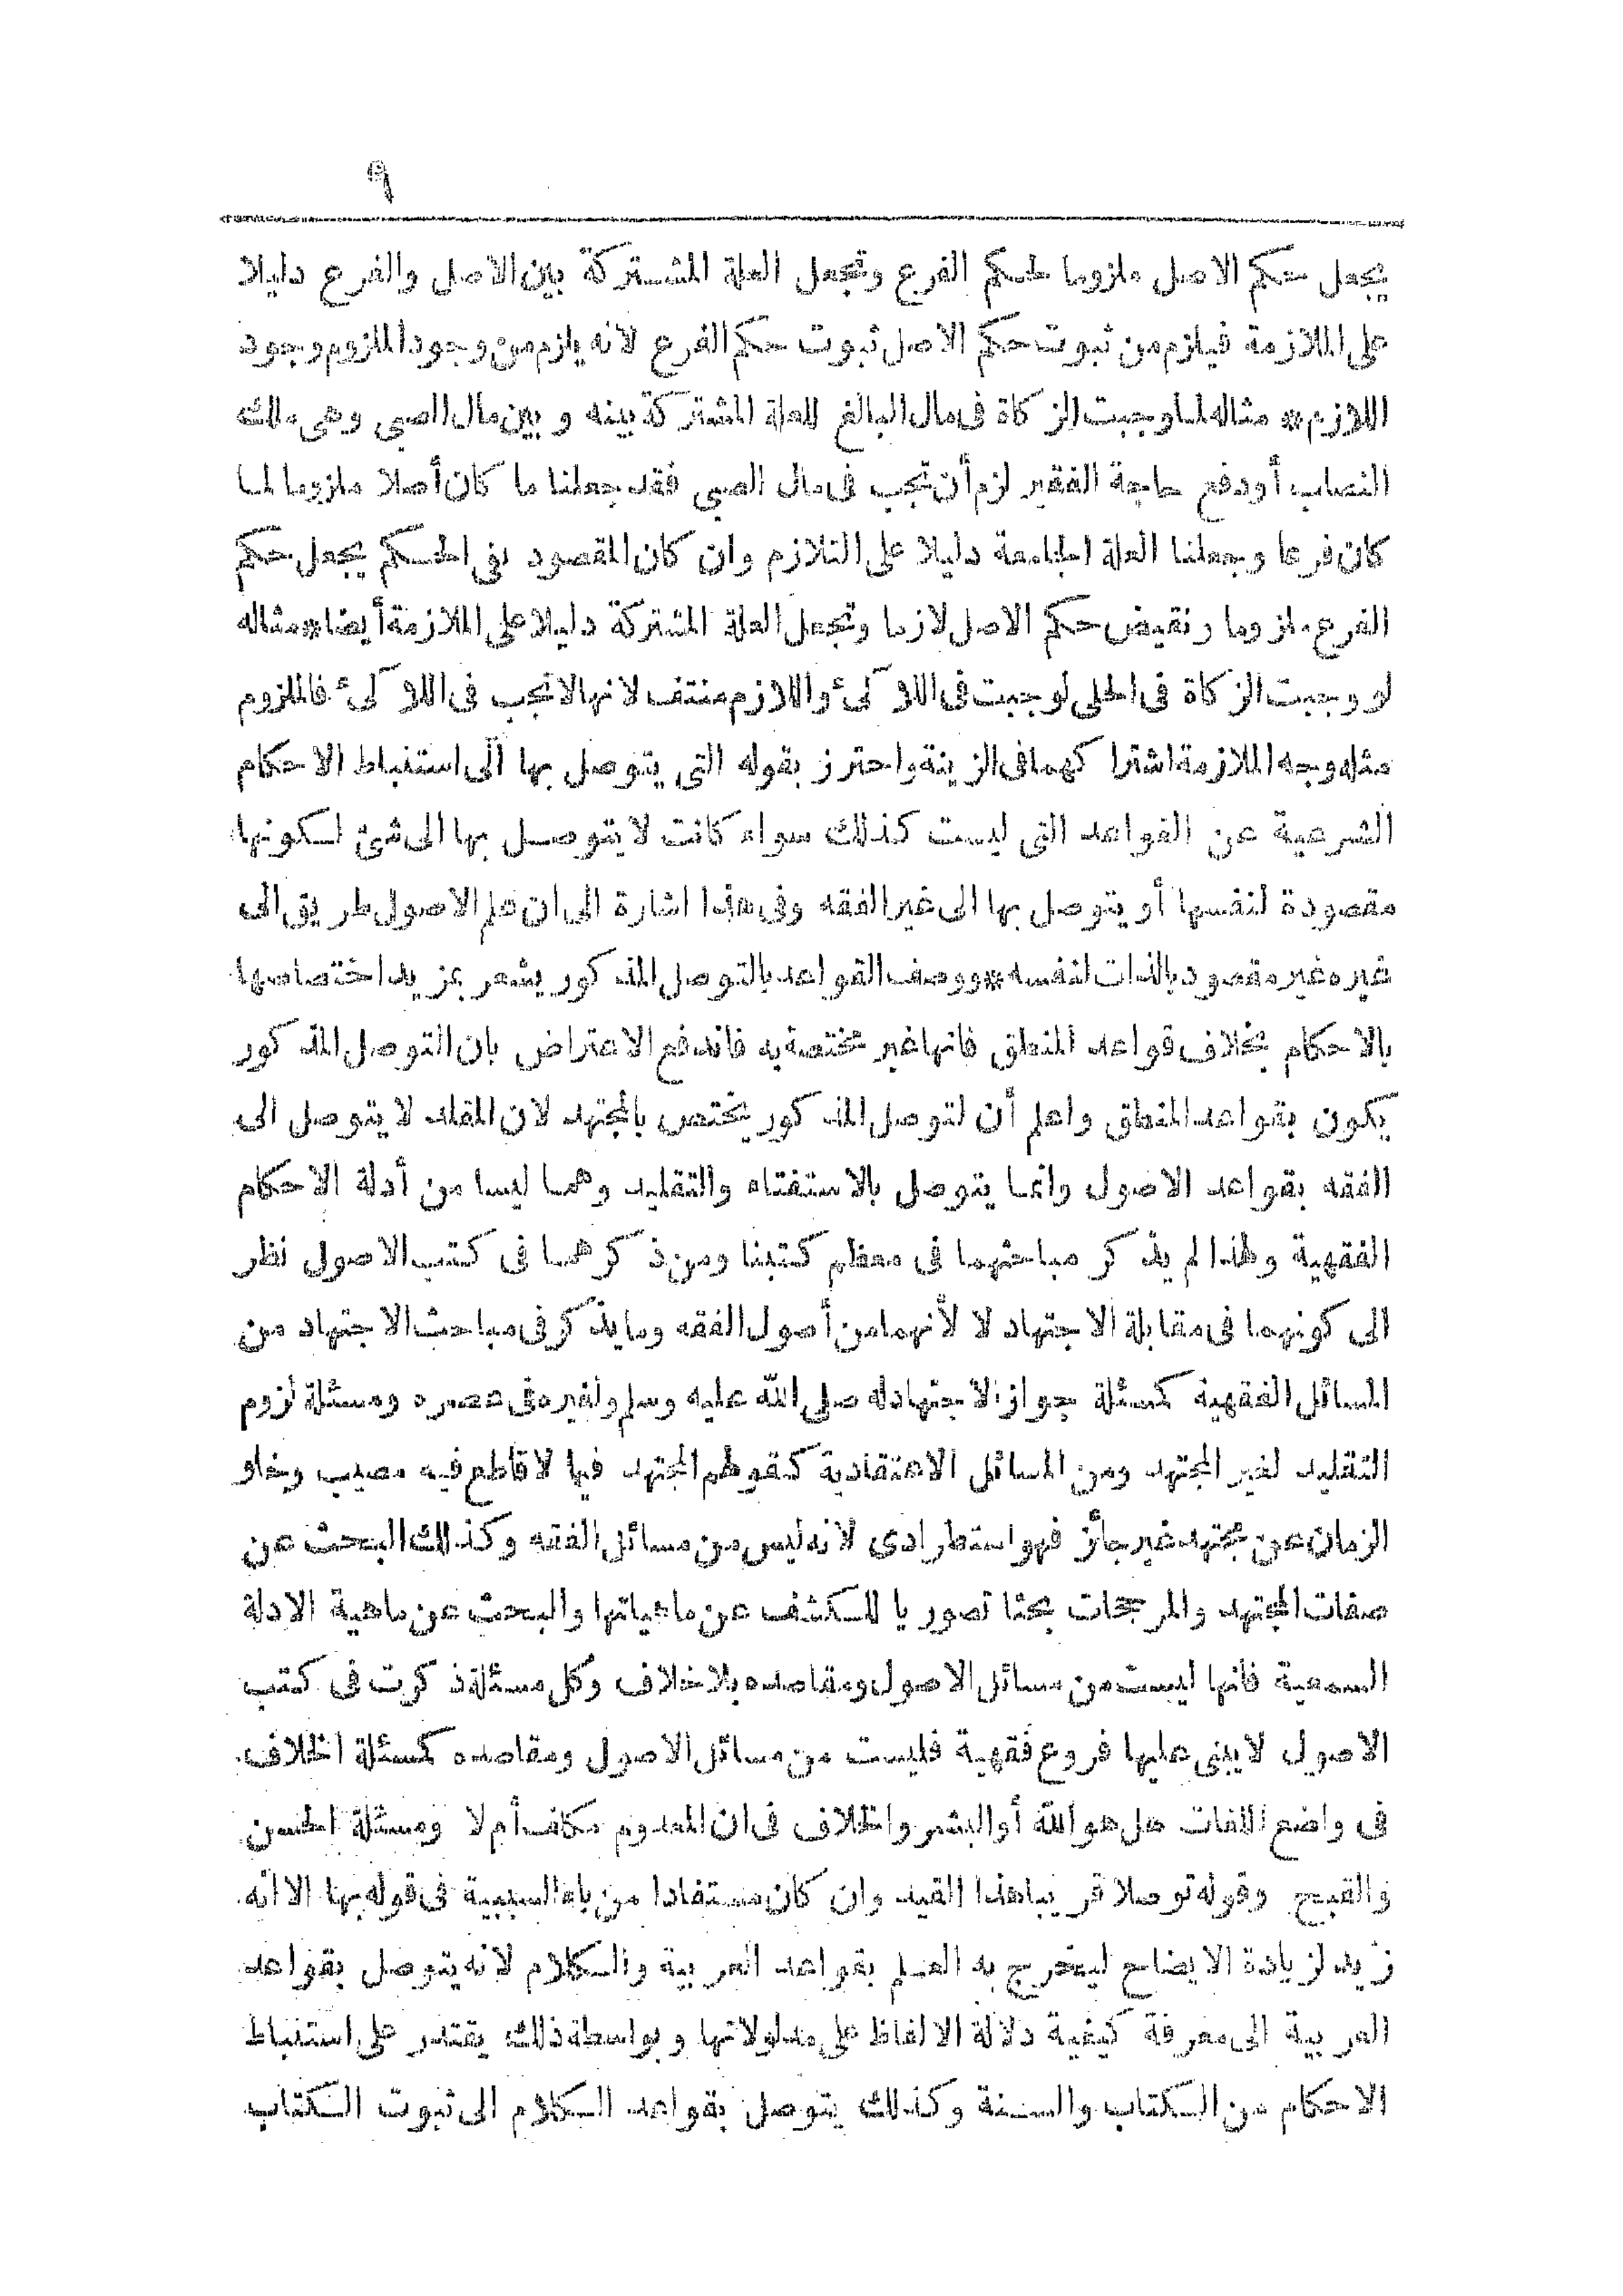 ٩
يجعل حكم الاصل ملزوما لحكم الفرع وتجعل العلة المشتركة بين الاصل والفرع دليلا
على الملازمة فيلزم من ثبوت حكم الاصل ثبوت حكم الفرع لانه يلزم من وجود الملزوم وجود
اللازم * مثاله لما وجبت الزكاة فى مال البالغ للعلة المشتركة بينه و بين مال الصبى وهى ملك
النصاب أو دفع حاجة الفقير لزم أن تجب فى مال الصبى فقد جعلنا ما كان أصلا ملزوما لما
كان فرعا وجعلنا العلة الجامعة دليلا على التلازم وان كان المقصود نفى الحكم يجعل حكم
الفرع ملزوما ونقيض حكم الاصل لازما وتجعل العلة المشتركة دليلا على الملازمة أيضا * مثاله
لو وجبت الزكاة فى الحلى لوجبت فى اللآ لئ واللازم منتف لانها لا تجب فى اللآ لئ فالملزوم
مثله وجه الملازمة اشتراكهما فى الزينة واحترز بقوله التى يتوصل بها الى استنباط الاحكام
الشرعية عن القواعد التى ليست كذلك سواء كانت لا يتوصل بها الى شئ لكونها
مقصودة لنفسها أو يتوصل بها الى غير الفقه وفى هذا اشارة الى ان علم الاصول طريق الى
غيره غير مقصود بالذات لنفسه * ووصف القواعد بالتوصل المذكور يشعر بمزيد اختصاصها
بالاحكام بخلاف قواعد المنطق فانها غير مختصة به فاندفع الاعتراض بان التوصل المذكور
يكون بقواعد المنطق واعلم أن لتوصل المذكور يختص بالمجتهد لان المقلد لا يتوصل الى
الفقه بقواعد الاصول وانما يتوصل بالاستفتاء والتقليد وهما ليسا من أدلة الاحكام
الفقهية ولهذا لم يذكر مباحثهما فى معظم كتبنا ومن ذكرهما فى كتب الاصول نظر
الى كونهما فى مقابلة الاجتهاد لا لأنهما من أصول الفقه وما يذكر فى مباحث الاجتهاد من
المسائل الفقهية كمسئلة جواز الاجتهاد له صلى الله عليه وسلم ولغيره فى عصره ومسئلة لزوم
التقليد لغير المجتهد ومن المسائل الاعتقادية كقولهم المجتهد فيما لا قاطع فيه مصيب وخلو
الزمان عن مجتهد غير جائز فهو استطرادى لانه ليس من مسائل الفقه وكذلك البحث عن
صفات المجتهد والمرجحات بحثا تصوريا للكشف عن ماهياتها والبحث عن ماهية الادلة
السمعية فانها ليست من مسائل الاصول ومقاصده بلا خلاف وكل مسئلة ذكرت فى كتب
الاصول لا يبنى عليها فروع فقهية فليست من مسائل الاصول ومقاصده كمسئلة الخلاف
فى واضع اللغات هل هو الله أو البشر والخلاف فى ان المعدوم مكلف أم لا ومسئلة الحسن
والقبح وقوله توصلا قريبا هذا القيد وان كان مستفادا من باء السببية فى قوله بها الا انه
زيد لزيادة الايضاح ليخرج به العلم بقواعد العربية والكلام لانه يتوصل بقواعد
العربية الى معرفة كيفية دلالة الالفاظ على مدلولاتها و بواسطة ذلك يقتدر على استنباط
الاحكام من الكتاب والسنة وكذلك يتوصل بقواعد الكلام الى ثبوت الكتاب